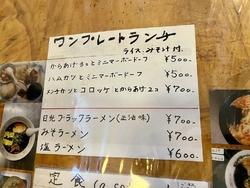 ワンプレートランチ
ライス.みそ汁付.
からあげ3ヶとミニマーボードーフ ¥500-
ハムカツとミニマーボードーフ ¥500-
メンチカツとコロッケとからあげ2コ ¥700-
日光ブラックラーメン(正油味) ¥700-
みそラーメン ¥700-
塩ラーメン ¥600-
定食